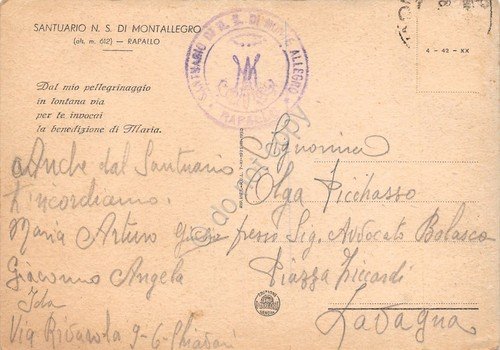 SANTUARIO N. S. DI MONTALLEGRO
(alt. m. 612) — RAPALLO
Dal mio pellegrinaggio
in lontana via
per te invocai
la benedizione di Maria.
SANTUARIO DI N. S. DI MONTE ALLEGRO
RAPALLO
4 - 42 - XX
Anche dal Santuario
ti ricordiamo.
Maria Arturo
Giacomo Angela
Ida
Via Rivarola 9-6-Chiavari
Signorina
Olga Picchasso
presso Sig. Avvocato Balasco
Piazza Riccardi
Lavagna